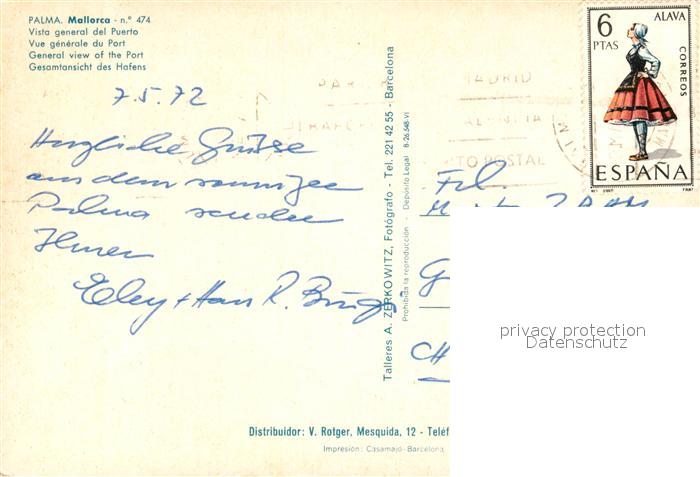 PALMA. Mallorca - n.° 474
Vista general del Puerto
Vue générale du Port
General view of the Port
Gesamtansicht des Hafens
7.5.72
Herzliche Grüsse
aus dem sonnigen
Palma senden
Ihnen
+ Hans R.
Talleres A. ZERKOWITZ, Fotógrafo - Tel. 221 42 55 - Barcelona
Prohibida la reproducción - Depósito Legal B-26.548-VI
6 PTAS
ALAVA
CORREOS
ESPAÑA
MADRID
POSTAL
Frl.
G
CH
privacy protection
Datenschutz
Distribuidor: V. Rotger, Mesquida, 12 - Teléf
Impresión: Casamajó-Barcelona